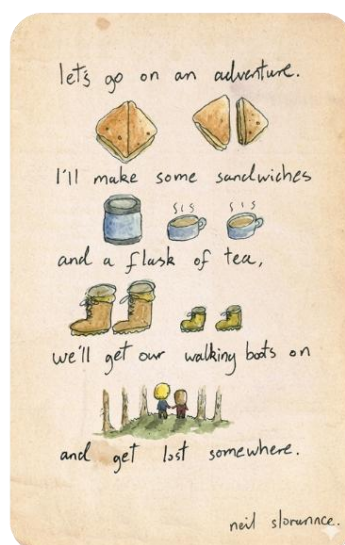 let's go on an adventure.
I'll make some sandwiches
and a flask of tea,
we'll get our walking boots on
and get lost somewhere.
neil slorannce.